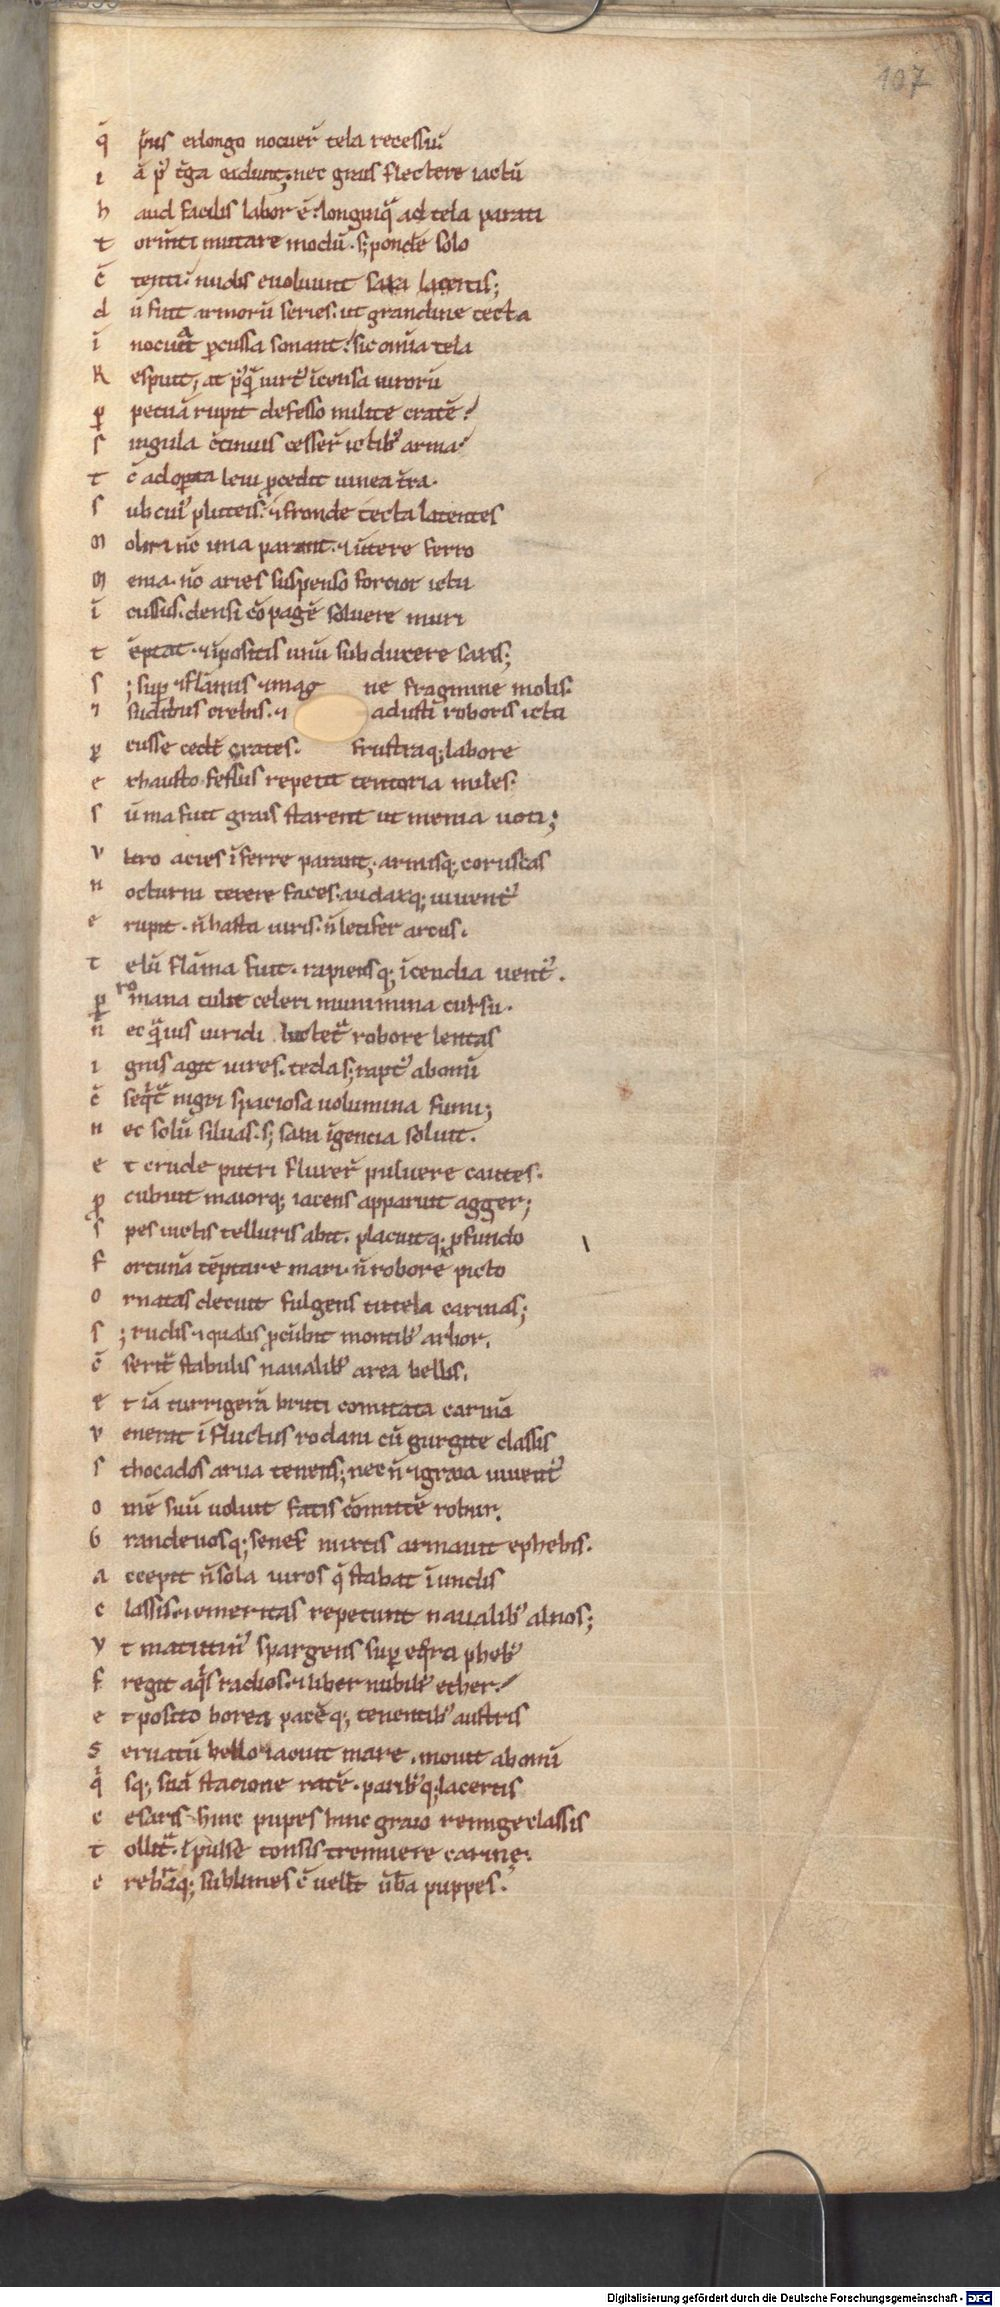 107
q̄ p̄us exlongo nocuer̄ tela recessu.
i ā p᷒ t̄ga cadunt; nec grais flectere iactū
h aud facilis labor ē. longinq̄ ad tela parati
t orm̄ti mutare modū. s; ponde solo
c̄ tenti. nudis euoluunt saxa lacertis;
d ū fuit armorū series. ut grandine tecta
i nocua percussa sonant. sic om̄ia tela
R espuit; at p᷒q̄ uirt᷒ īcensa uirorū
ꝑ petuā rupit defesso milite cratē.
s ingula c̄tinuis cesser̄ ictib᷒ arma.
t c̄ adopta leui ꝓcedit uinea t̄ra.
s ub cui᷒ pluteis. ⁊ fronde tecta latentes
m oliri nc̄ ima parant. ⁊ uertere ferro
m enia. nc̄ aries suspenso forcior ictu
i cussus. densi cōpagē soluere muri
t ēptat. ⁊ īpositis unū subducere saxis;
s ; sup ⁊ flāmis ⁊ mag ne fragmine molis.
⁊ sudibus crebris. ⁊ adusti roboris ictu
ꝑ cusse cedt̄ crates. frustraq; labore
e xhausto fessus repetit tentoria miles.
s ūma fuit grais starent ut menia uoti;
v ltro acies īferre parant; armisq; coruscas
n octurni texere faces. audaxq; iuuent᷒
e rupit. n̄ hasta uiris. n̄ letifer arcus.
t elū flāma fuit. rapiensq; īcendia uent᷒.
ꝑ romana tulit celeri munimina cursu.
n̄ ec q̄uis uiridi luctet᷒ robore lentas
i gnis agit uires. teda s; rapt᷒ abomī
c̄ seq̄t᷒ nigri spaciosa uolumina fumi;
n ec solū siluas. s; saxa īgencia soluit.
e t crude putri fluxer̄ puluere cautes.
ꝓ cubuit maiorq; iacens apparuit agger;
s pes uictis telluris abit. placuitq; ꝓfundo
f ortunā tēptare mari. n̄ robore picto
o rnatas decuit fulgens tutela carinas;
s ; rudis ⁊ qualis ꝓcūbit montib᷒ arbor.
c̄ serit᷒ stabulis naualib᷒ area bellis.
e t iā turrigerā bruti comitata carinā
v enerat ī fluctus rodani cū gurgite classis
s thocados arua tenens; nec n̄ ⁊ graia iuuent᷒
o mē suū uoluit fatis cōmitte᷒ robur.
G randeuosq; senes mixtis armauit ephebis.
a ccepit n̄ sola uiros q̄ stabat ī undis
c lassis. ⁊ emeritas repetunt naualib᷒ alnos;
v t matutin᷒ spargens sup eq̄ra pheb᷒
f regit aq̄s radios. ⁊ liber nubib᷒ ether.
e t posito borea pacēq; tenentib᷒ austris
S eruatū bello iacuit mare. mouit abomī
q̄ sq; suā stacione ratē. parib᷒q; lacertis
c esaris hinc pupes hinc graio remige classis
t ollit᷒. īpulse tonsis tremuere carine.
c rebraq; sublimes c̄ uellt̄ ūba puppes.
Digitalisierung gefördert durch die Deutsche Forschungsgemeinschaft - DFG